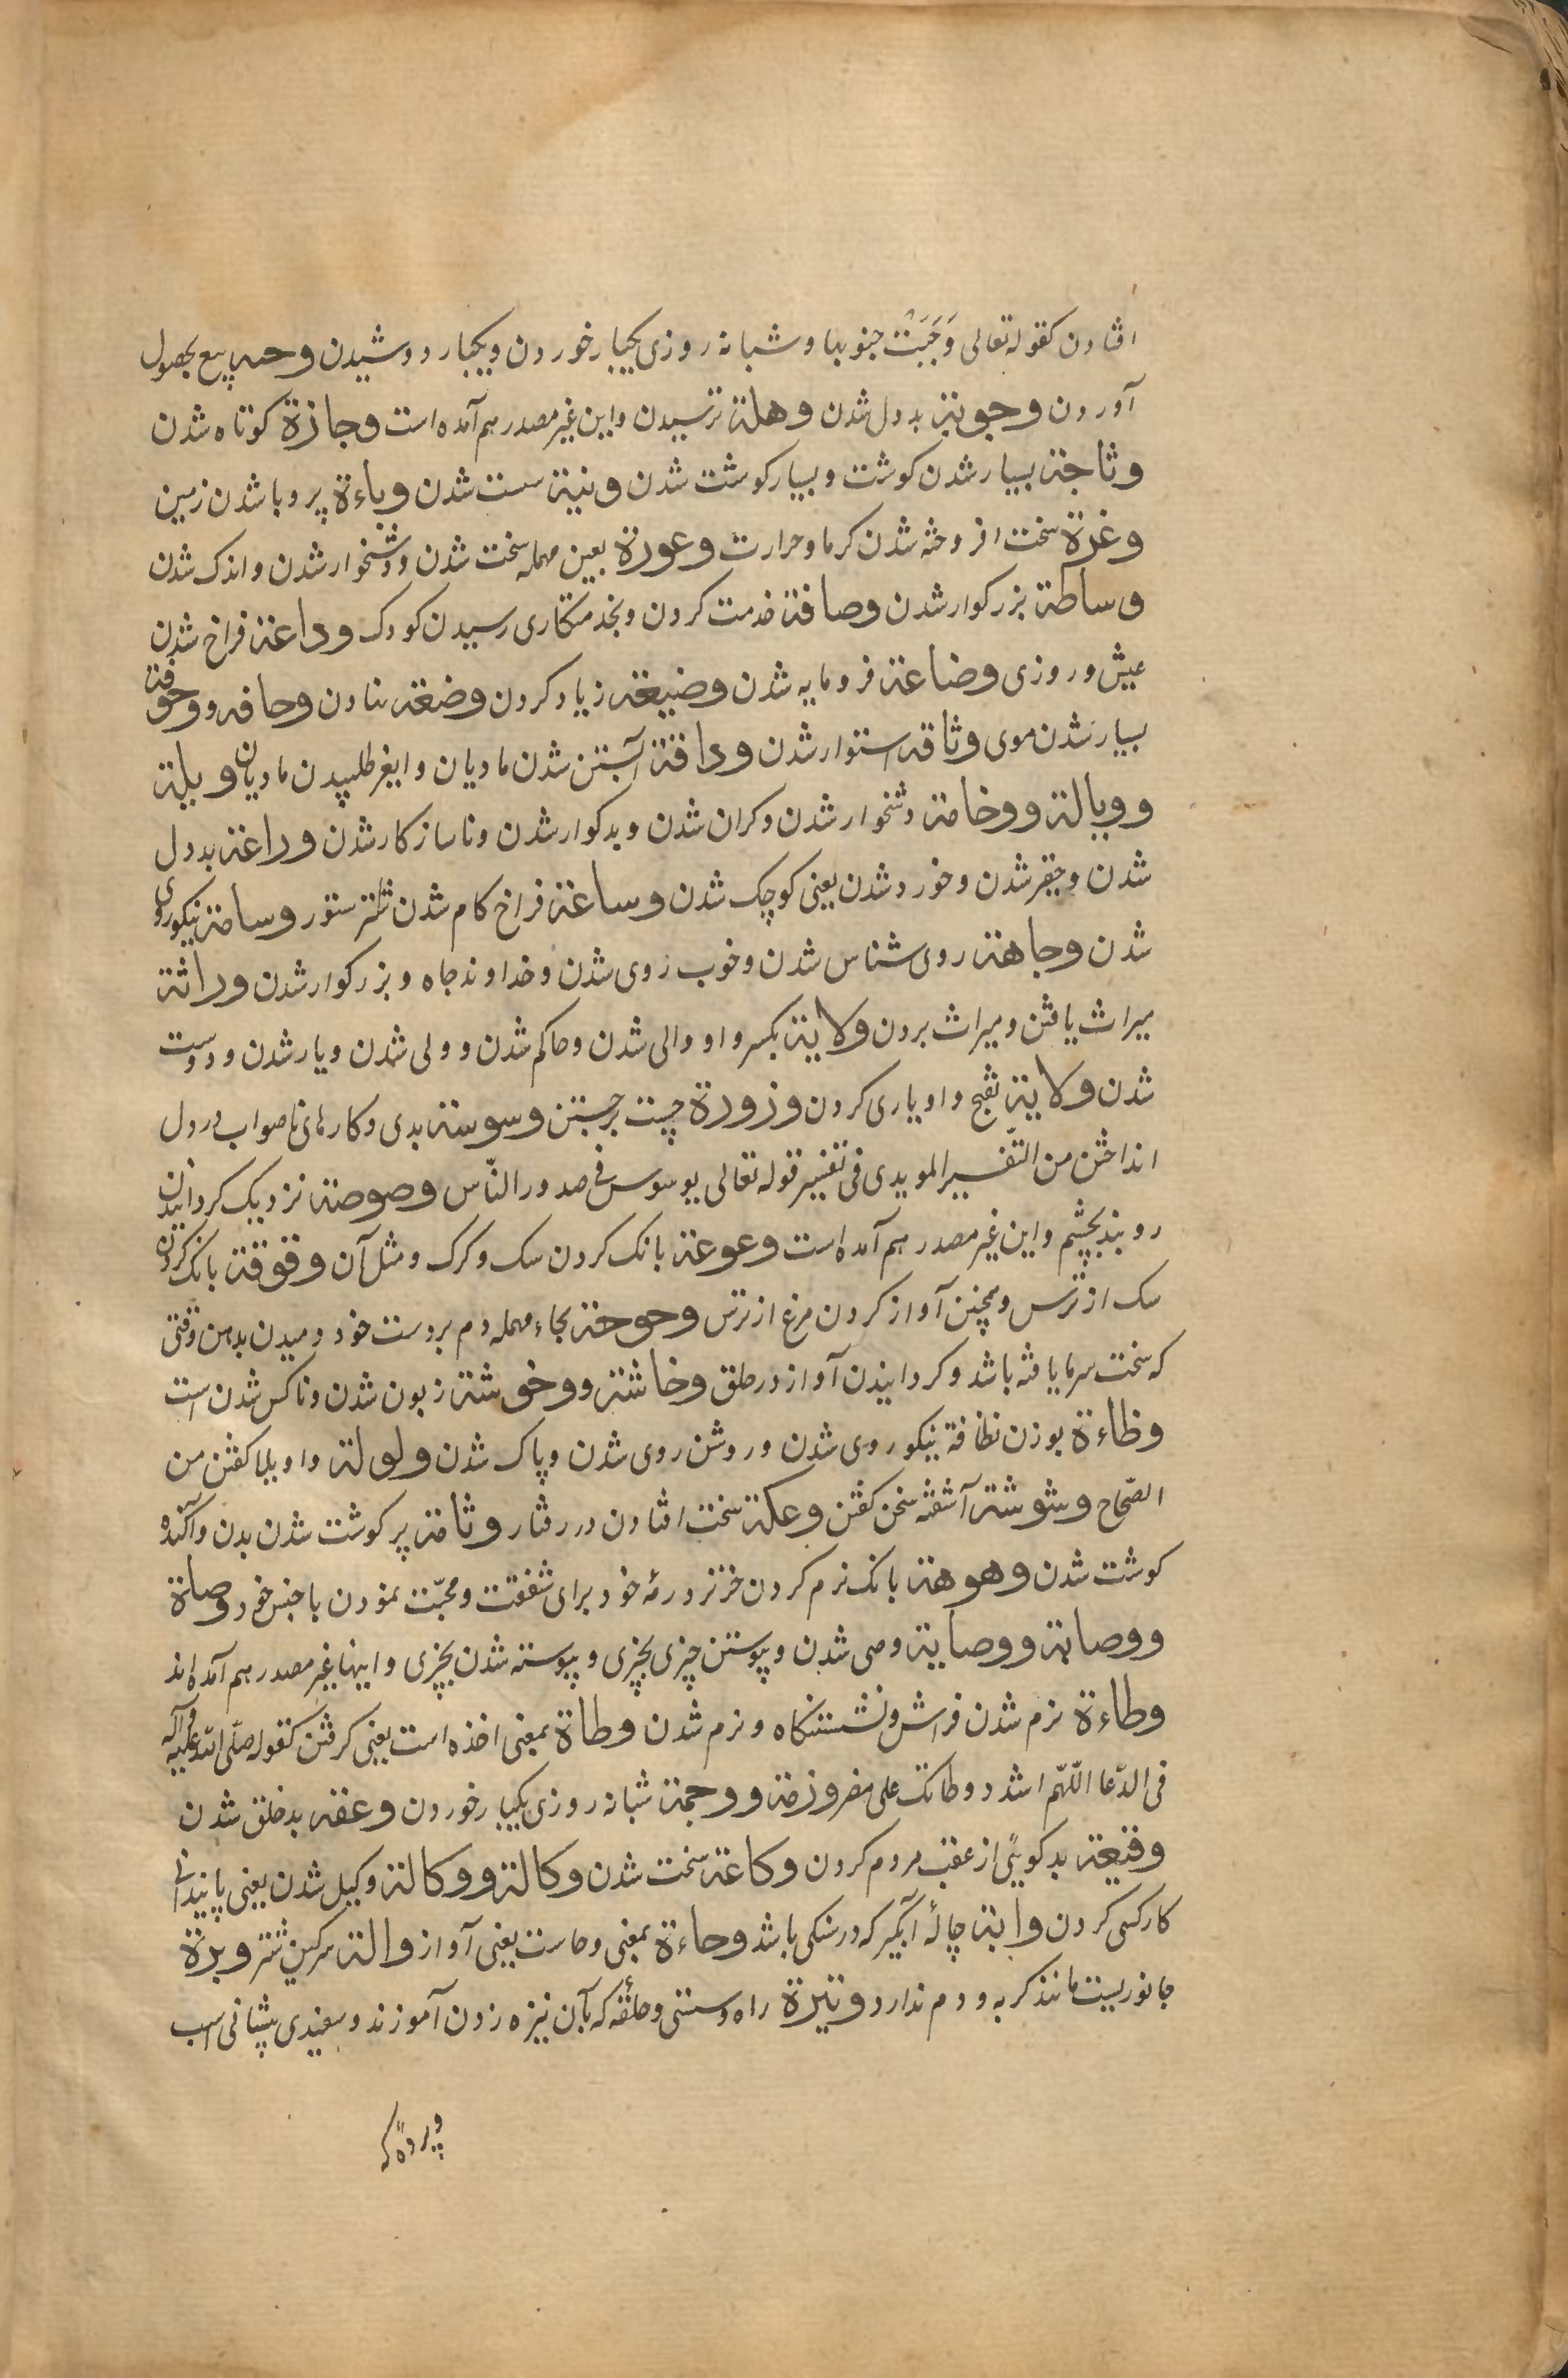 افتادن کقوله تعالی وَجَبَتْ جنوبها و شبانه روزی یکبار خوردن و یکبار دوشیدن وجیبه بیع بحصول
آوردن وجوبة بددل شدن وهلة ترسیدن و این غیر مصدر هم آمده است وجازة کوتاه شدن
وثاجة بسیار شدن کوشت و بسیار کوشت شدن ونیة سست شدن وباءة پر وبا شدن زمین
وغرة سخت افروخته شدن کرما و حرارت وعورة بعین مهمله سخت شدن و دشخوار شدن و اندک شدن
وساطة بزرکوار شدن وصافة خدمت کردن و بخدمتکاری رسیدن کودک وداعة فراخ شدن
عیش و روزی وضاعة فرومایه شدن وضیعة زیاد کردن وضعة نهادن وحافه ووحوفة
بسیار شدن موی وثاقه استوار شدن وداقة آبستن شدن مادیان و ایغر طلبیدن مادیان وبلة
ووبالة ووخامة دشخوار شدن و کران شدن و بدکوار شدن و ناسازکار شدن وراعة بددل
شدن و حقیر شدن و خورد شدن یعنی کوچک شدن وساعة فراخ کام شدن شتر ستور وسامة نیکوروی
شدن وجاهة روی شناس شدن و خوب روی شدن و خداوند جاه و بزرکوار شدن وراثة
میراث یافتن و میراث بردن ولایة بکسر واو والی شدن و حاکم شدن و ولی شدن و یار شدن و دوست
شدن ولایة بفتح واو یاری کردن وزورة چست برجستن وسوسة بدی و کارهای ناصواب در دل
انداختن من التّفسیر المویدی فی تفسیر قوله تعالی یوسوس فی صدور النّاس وصوصة نزدیک کردانیدن
روبند بچشم و این غیر مصدر هم آمده است وعوعة بانک کردن سک و کرک و مثل آن وقوقة بانک کردن
سک از ترس و همچنین آواز کردن مرغ از ترس وحوحة بحاء مهمله دم بر دست خود دمیدن بدهن وقتی
که سخت سرما یافته باشد و کردانیدن آواز در حلق وخاشة ووخوشة زبون شدن و ناکس شدن است
وظاءة بوزن نظافة نیکوروی شدن و روشن روی شدن و پاک شدن ولولة واویلا کفتن من
الصّحاح وشوشة آشفته سخن کفتن وعکة سخت افتادن در رفتار وثامة پر کوشت شدن بدن و آکنده
کوشت شدن وهوهة بانک نرم کردن خر نر در رمهٔ خود برای شفقت و محبّت نمودن با جنس خود وصاة
ووصاة ووصایة وصی شدن و پیوستن چیزی بچیزی و پیوسته شدن بچیزی و اینها غیر مصدر هم آمده‌اند
وطاءة نرم شدن فراش و نشستنکاه و نرم شدن وطاة بمعنی اخذه است یعنی کرفتن کقوله صلّی اللّه علیه و آله
فی الدّعا اللّهم اشدد وطاتک علی مضر وزمة ووجمة شبانه روزی یکبار خوردن وعقه بدخلق شدن
وقیعة بدکویئی از عقب مردم کردن وکاعة سخت شدن وکالة ووکالة وکیل شدن یعنی پایندانی
کار کسی کردن وابة چالهٔ آبگیر که در سنکی باشد وحاءة بمعنی وحاست یعنی آواز والة سرکین شتر وبرة
جانوریست مانند کربه و دم ندارد وتیرة راه و سستی و حلقه که بآن نیزه زدن آموزند و سفیدی پیشانی اسب
و پردهٔ که